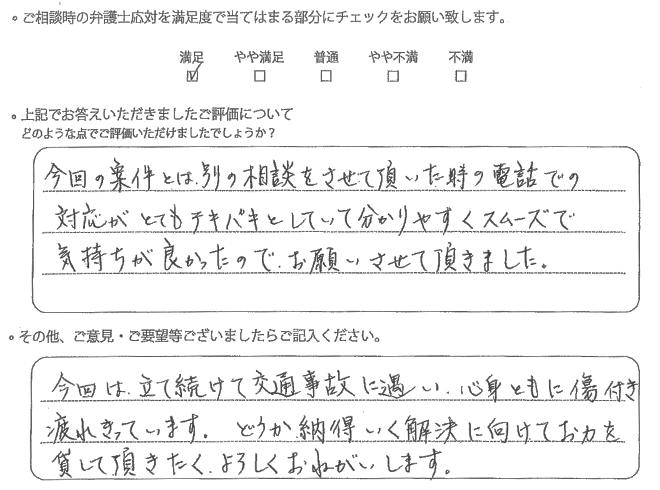 。ご相談時の弁護士応対を満足度で当てはまる部分にチェックをお願い致します。
満足 やや満足 普通 やや不満 不満
。上記でお答えいただきましたご評価について
どのような点でご評価いただけましたでしょうか？
今回の案件とは、別の相談をさせて頂いた時の電話での
対応がとてもテキパキとしていて分かりやすくスムーズで
気持ちが良かったので、お願いさせて頂きました。
。その他、ご意見・ご要望等ございましたらご記入ください。
今回は、立て続けて交通事故に遇い、心身ともに傷付き
疲れきっています。どうか、納得いく解決に向けてお力を
貸して頂きたく、よろしくおねがいします。